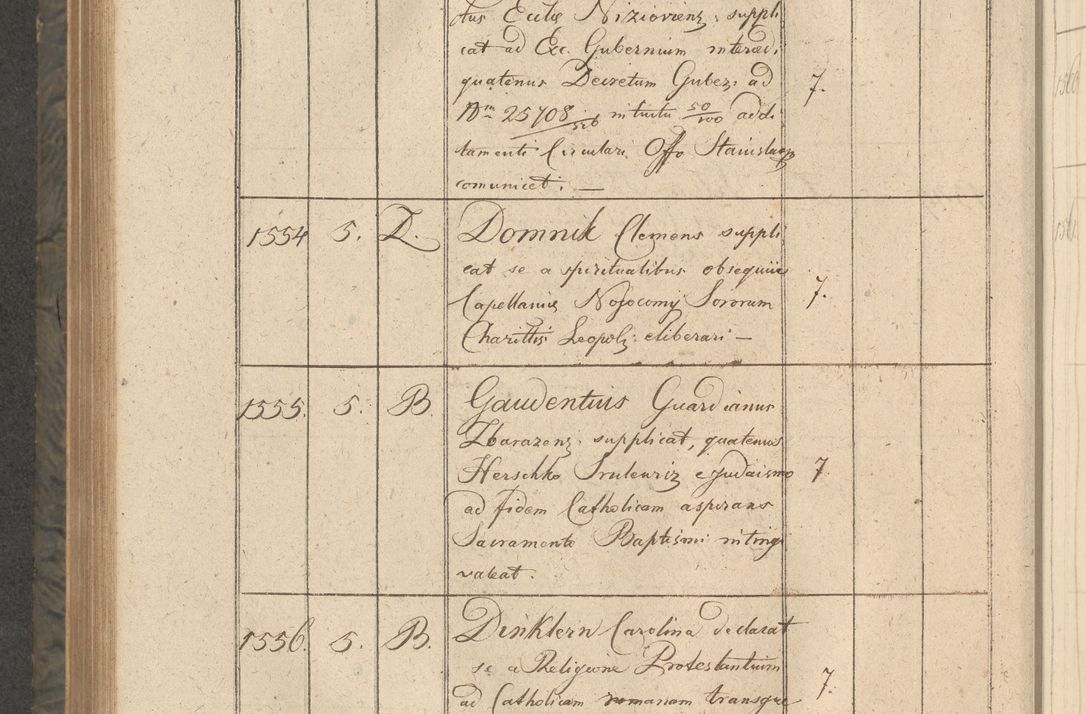 tus Ecclae Niziovienz: suppli
cat ad Exc. Gubernium interced.
quatenus Decretum Guber: ad
Nm 25708/526 intuitu 50/100 addi
tamenti Circulari Offo Stanislaop
comunicet. —
7.
1554 5. D. Domnik Clemens suppli
cat se a spiritualibus obsequiis
Capellaniae Nosocomij Sororum
Charittis Leopol: eliberari —
7.
1555. 5. B. Gaudentius Guardianus
Zbarazenz. supplicat, quatenus
Herschko Sruleuriz e Judaismo
ad fidem Catholicam aspirans
Sacramento Baptismi intingi
valeat.
7.
1556. 5. B. Dinktern Carolina declarat
se a Religione Protestantium
ad Catholicam romanam transgre
7.